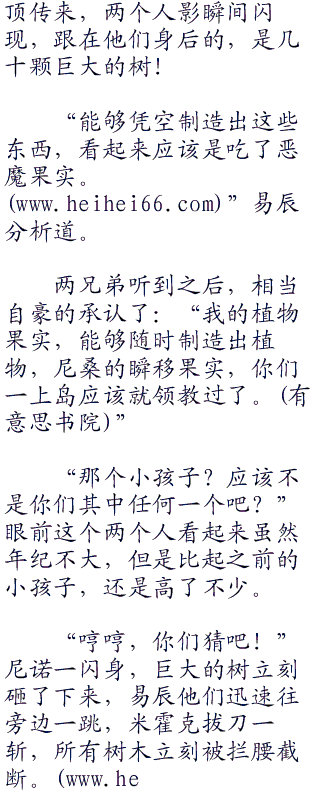 顶传来，两个人影瞬间闪
现，跟在他们身后的，是几
十颗巨大的树！
“能够凭空制造出这些
东西，看起来应该是吃了恶
魔果实。
(www.heihei66.com)”易辰
分析道。
两兄弟听到之后，相当
自豪的承认了：“我的植物
果实，能够随时制造出植
物，尼桑的瞬移果实，你们
一上岛应该就领教过了。(有
意思书院)”
“那个小孩子？应该不
是你们其中任何一个吧？”
眼前这个两个人看起来虽然
年纪不大，但是比起之前的
小孩子，还是高了不少。
“哼哼，你们猜吧！”
尼诺一闪身，巨大的树立刻
砸了下来，易辰他们迅速往
旁边一跳，米霍克拔刀一
斩，所有树木立刻被拦腰截
断。(www.he